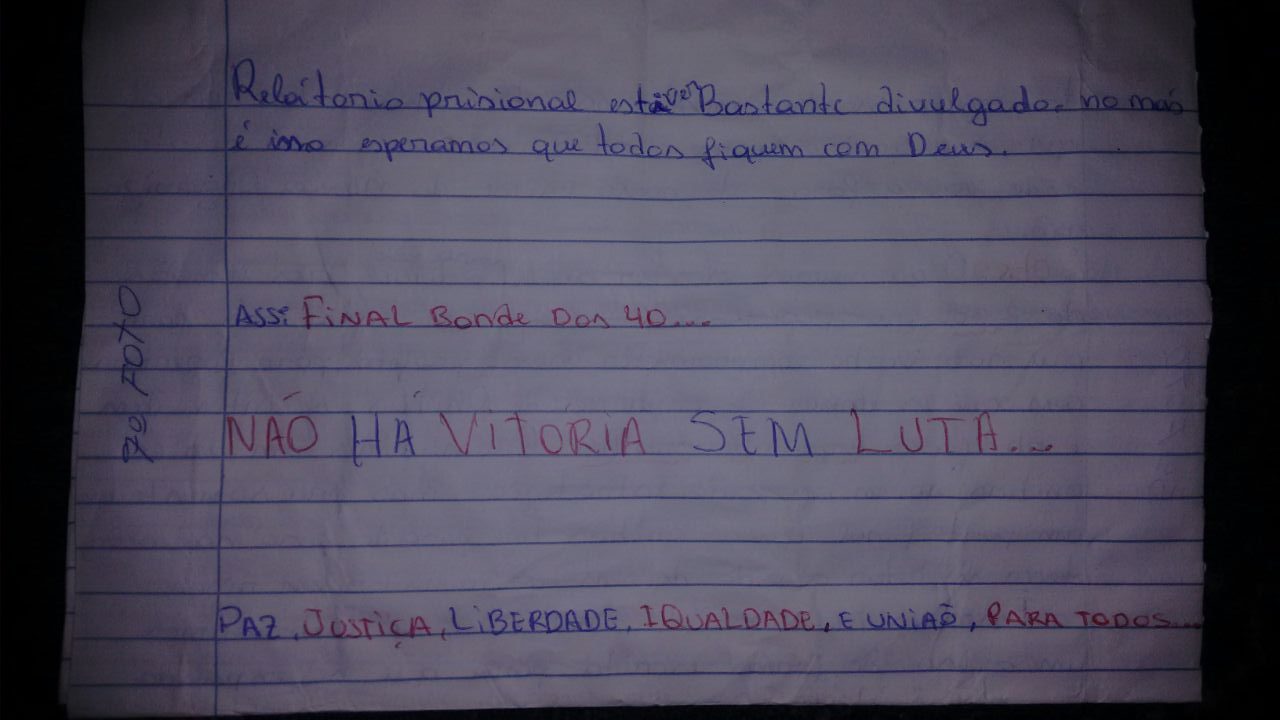 Relatorio prisional esteve Bastante divulgado. no mais
é isso esperamos que todos fiquem com Deus.
Ass: FiNAL Bonde Dos 40...
7º FOTO
NÃO HÁ ViTÓRiA SEM LUTA...
PAZ, JUSTiÇA, LiBERDADE, IGUALDADE, E UNiAÕ, PARA TODOS...